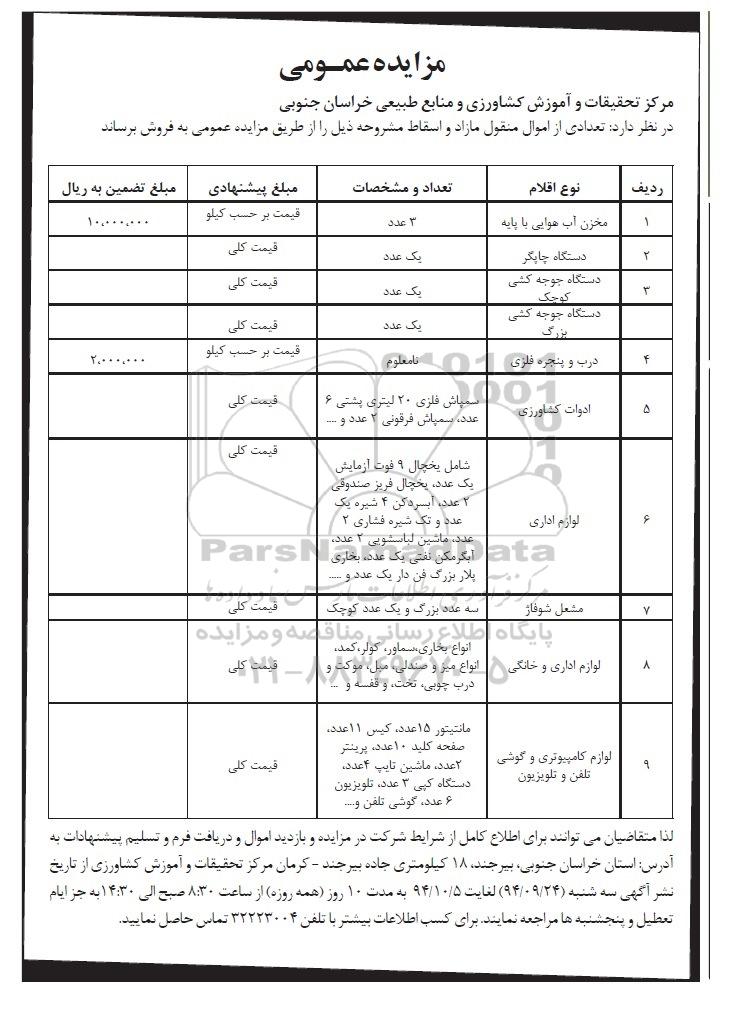 مزایده عمومی
مرکز تحقیقات و آموزش کشاورزی و منابع طبیعی خراسان جنوبی
در نظر دارد: تعدادی از اموال منقول مازاد و اسقاط مشروحه ذیل را از طریق مزایده عمومی به فروش برساند
ردیف نوع اقلام تعداد و مشخصات مبلغ پیشنهادی مبلغ تضمین به ریال
۱ مخزن آب هوایی با پایه ۳ عدد قیمت بر حسب کیلو ۱۰،۰۰۰،۰۰۰
۲ دستگاه چاپگر یک عدد قیمت کلی
۳ دستگاه جوجه کشی کوچک یک عدد قیمت کلی
دستگاه جوجه کشی بزرگ یک عدد قیمت کلی
۴ درب و پنجره فلزی نامعلوم قیمت بر حسب کیلو ۲،۰۰۰،۰۰۰
۵ ادوات کشاورزی سمپاش فلزی ۲۰ لیتری پشتی ۶ قیمت کلی
عدد، سمپاش فرقونی ۲ عدد و ....
۶ لوازم اداری قیمت کلی
شامل یخچال ۹ فوت آزمایش
یک عدد، یخچال فریز صندوقی
۲ عدد، آبسردکن ۴ شیره یک
عدد و تک شیره فشاری ۲
عدد، ماشین لباسشویی ۲ عدد،
آبگرمکن نفتی یک عدد، بخاری
پلار بزرگ فن دار یک عدد و .....
۷ مشعل شوفاژ سه عدد بزرگ و یک عدد کوچک قیمت کلی
۸ لوازم اداری و خانگی قیمت کلی
انواع بخاری،سماور، کولر،کمد،
انواع میز و صندلی، مبل، موکت و
درب چوبی، تخت، و قفسه و ...
۹ لوازم کامپیوتری و گوشی تلفن و تلویزیون قیمت کلی
مانتیتور ۱۵عدد، کیس ۱۱عدد،
صفحه کلید ۱۰عدد، پرینتر
۲عدد، ماشین تایپ ۴عدد،
دستگاه کپی ۳ عدد، تلویزیون
۶ عدد، گوشی تلفن و....
لذا متقاضیان می توانند برای اطلاع کامل از شرایط شرکت در مزایده و بازدید اموال و دریافت فرم و تسلیم پیشنهادات به
آدرس: استان خراسان جنوبی، بیرجند، ۱۸ کیلومتری جاده بیرجند - کرمان مرکز تحقیقات و آموزش کشاورزی از تاریخ
نشر آگهی سه شنبه (۹۴/۰۹/۲۴) لغایت ۹۴/۱۰/۵ به مدت ۱۰ روز (همه روزه) از ساعت ۸:۳۰ صبح الی ۱۴:۳۰به جز ایام
تعطیل و پنجشنبه ها مراجعه نمایند. برای کسب اطلاعات بیشتر با تلفن ۳۲۲۲۳۰۰۴ تماس حاصل نمایید.
ParsNamadData
مرکز فرآوری اطلاعات پارس نماد داده ها
پایگاه اطلاع رسانی مناقصه و مزایده
۰۲۱-۸۸۳۴۹۶۷۰-۵